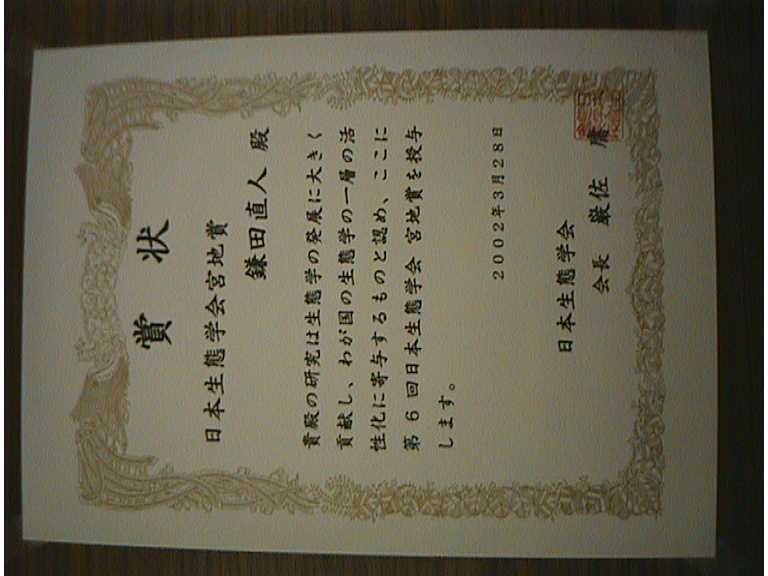 賞状
日本生態学会宮地賞
鎌田直人 殿
貴殿の研究は生態学の発展に大きく
貢献し、わが国の生態学の一層の活
性化に寄与するものと認め、ここに
第6回日本生態学会 宮地賞を授与
します。
2002年3月28日
日本生態学会
会長 巌佐 庸